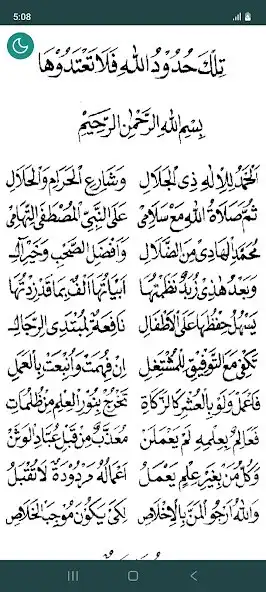 5:08
تِلْكَ حُدُوْدُ اللّٰهِ فَلَا تَعْتَدُوْهَا
بِسْمِ اللّٰهِ الرَّحْمٰنِ الرَّحِيْمِ
اَلْحَمْدُ لِلْاِلٰهِ ذِى الْجَلَالِ وَشَارِعِ الْحَرَامِ وَالْحَلَالِ
ثُمَّ صَلَاةُ اللّٰهِ مَعْ سَلَامِىْ عَلَى النَّبِيِّ الْمُصْطَفَى التِّهَامِىْ
مُحَمَّدِ الْهَادِىْ مِنَ الضَّلَالِ وَاَفْضَلِ الصَّحْبِ وَخَيْرِ آلِ
وَبَعْدُ هٰذِىْ زُبَدٌ نَظَمْتُهَا اَبْيَاتُهَا اَلْفٌ بِمَا قَدْ زِدْتُهَا
يَسْهُلُ حِفْظُهَا عَلَى الْاَطْفَالِ نَافِعَةٌ لِمُبْتَدِى الرِّجَالِ
تَكْفِىْ مَعَ التَّوْفِيْقِ لِلْمُشْتَغِلِ اِنْ فُهِمَتْ وَاُتْبِعَتْ بِالْعَمَلِ
فَاعْمَلْ وَلَوْ بِالْعُشْرِ كَالزَّكَاةِ تَخْرُجْ بِنُوْرِ الْعِلْمِ مِنْ ظُلُمَاتِ
فَعَالِمٌ بِعِلْمِهِ لَمْ يَعْمَلَنْ مُعَذَّبٌ مِنْ قَبْلِ عُبَّادِ الْوَثَنْ
وَكُلُّ مَنْ بِغَيْرِ عِلْمٍ يَعْمَلُ اَعْمَالُهُ مَرْدُوْدَةٌ لَا تُقْبَلُ
وَاللّٰهَ اَرْجُو الْمَنَّ بِالْاِخْلَاصِ لِكَىْ يَكُوْنَ مُوْجِبَ الْخَلَاصِ